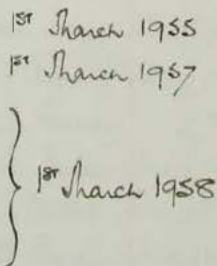 1ST March 1955
1ST March 1957
1ST March 1958